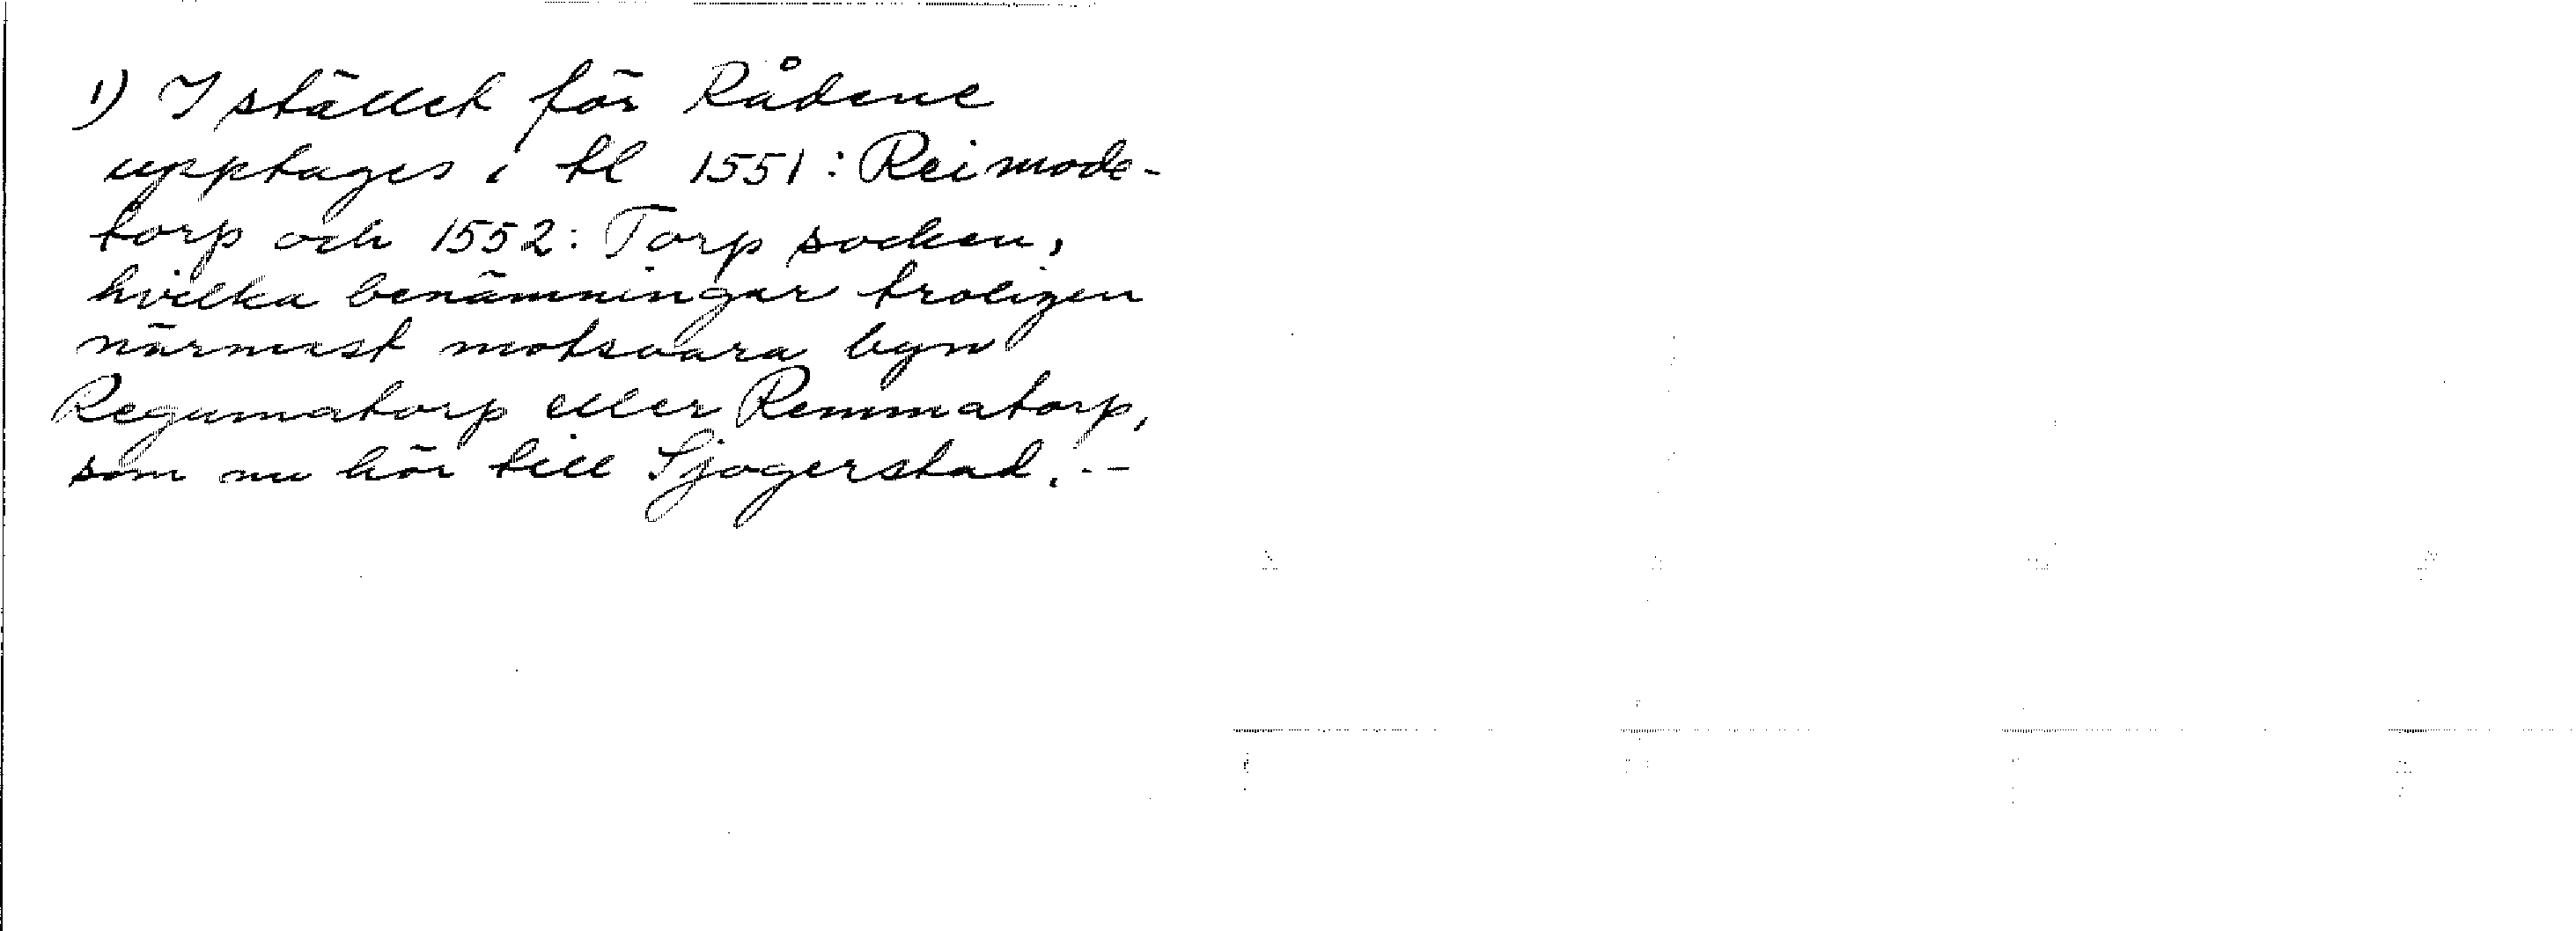 1) I stället för Rådene
upptages i tl 1551: Reimode-
torp och 1552: Torp socken,
hvilka benämningar troligen
närmast motsvara byn
Regumatorp eller Remmatorp,
som nu hör till Sjogerstad. -